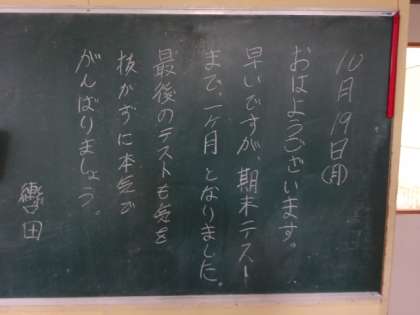 10月19日(月)
おはようございます。
早いですが、期末テスト
まで、一ヶ月となりました。
最後のテストも気を
抜かずに本気で
がんばりましょう。
轡田